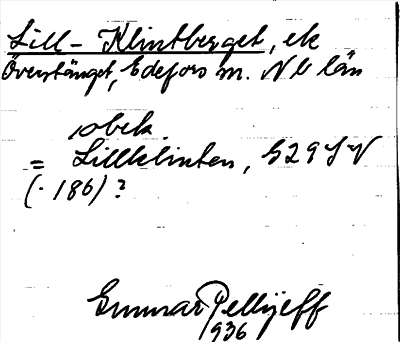 Lill-Klintberget, ek
Överstänget, Edefors sn. Nb län
obek.
= Lillklinten, 529 SV
(· 186)?
Gunnar Pellijeff
1936